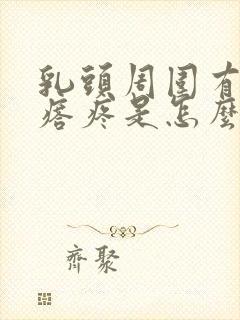 乳頭周圍有
痞疼是怎麼
齊聚